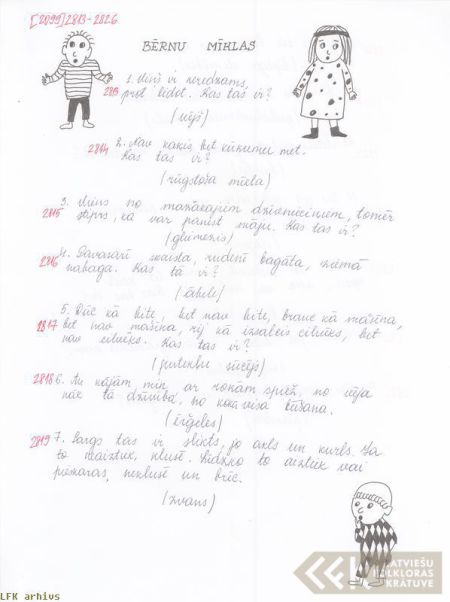 [2099] 2813-2826
BĒRNU MĪKLAS
1. Viņš ir neredzams,
2813 prot lidot. Kas tas ir?
(vējš)
2814 2. Nav kaķis, bet kūkumu met.
Kas tas ir?
(rūgstoša mīkla)
3. Viens no mazākajiem dzīvnieciņiem, tomēr
2815 stiprs, ka var panest māju. Kas tas ir?
(gliemezis)
2816 4. Pavasarī skaista, rudenī bagāta, ziemā
nabaga. Kas tā ir?
(ābele)
5. Dūc kā bite, bet nav bite, brauc kā mašīna,
2817 bet nav mašīna, rij kā izsalcis cilvēks, bet
nav cilvēks. Kas tas ir?
(putekļu sūcējs)
2818 6. Ar kājām min, ar rokām spiež, no vēja
nāk tā dzīvība, no koka visa būšana.
(ērģeles)
2819 7. Sargs tas ir slikts, jo akls un kurls. Ja
to neaiztiek, klusē. Līdzko to aiztiek vai
pieskaras, neklusē un brēc.
(zvans)
LFK arhīvs
LFK
LATVIEŠU
FOLKLORAS
KRĀTUVE